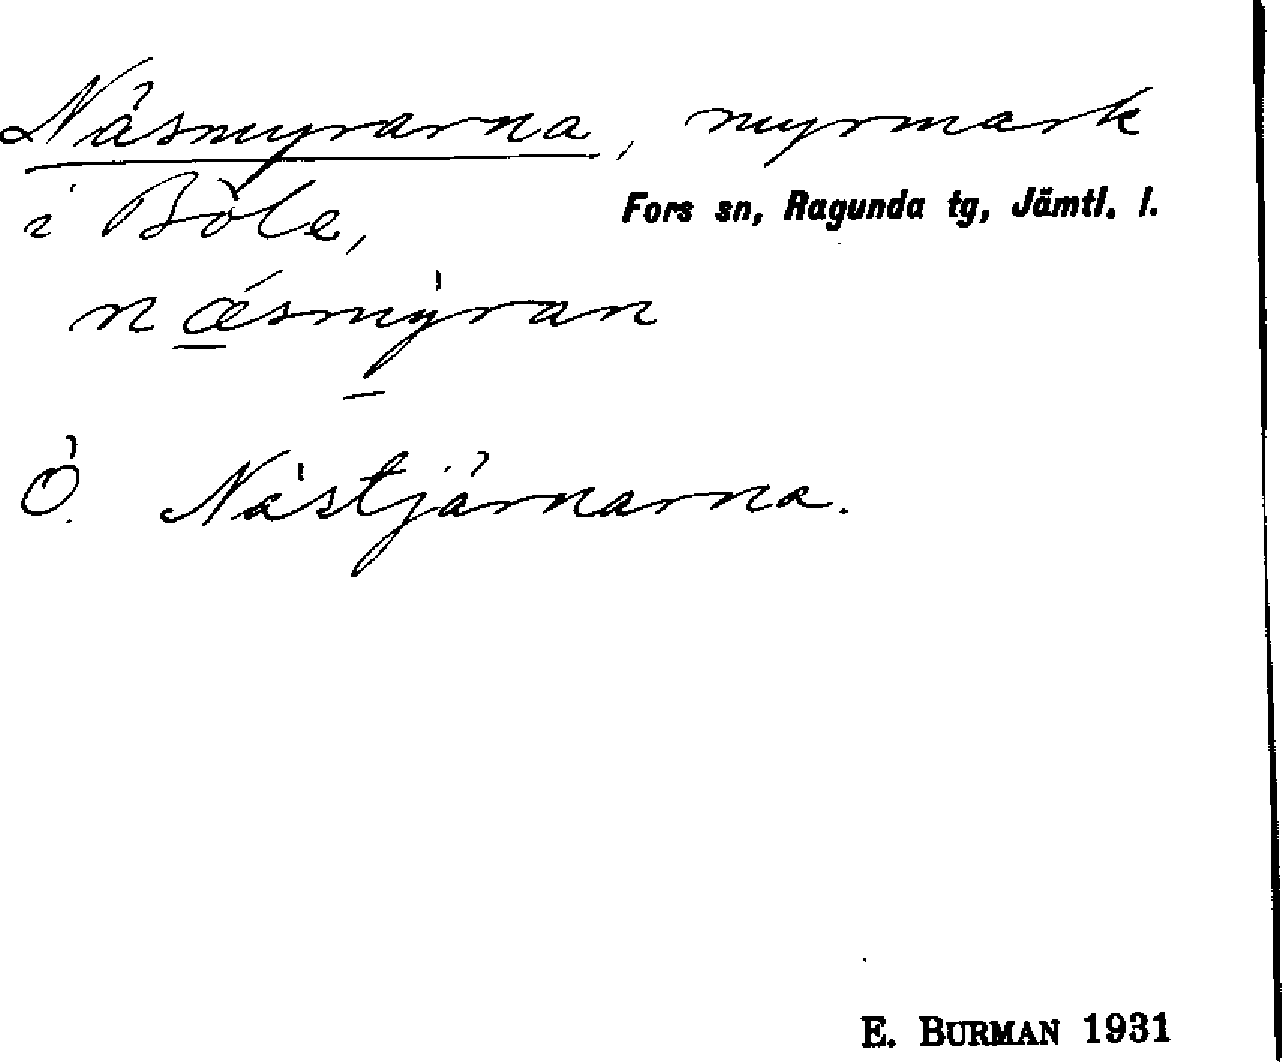 Näsmyrarna, myrmark
i Böle,
Fors sn, Ragunda tg, Jämtl. l.
næ̲smýran
Ö. Nästjärnarna.
E. BURMAN 1931